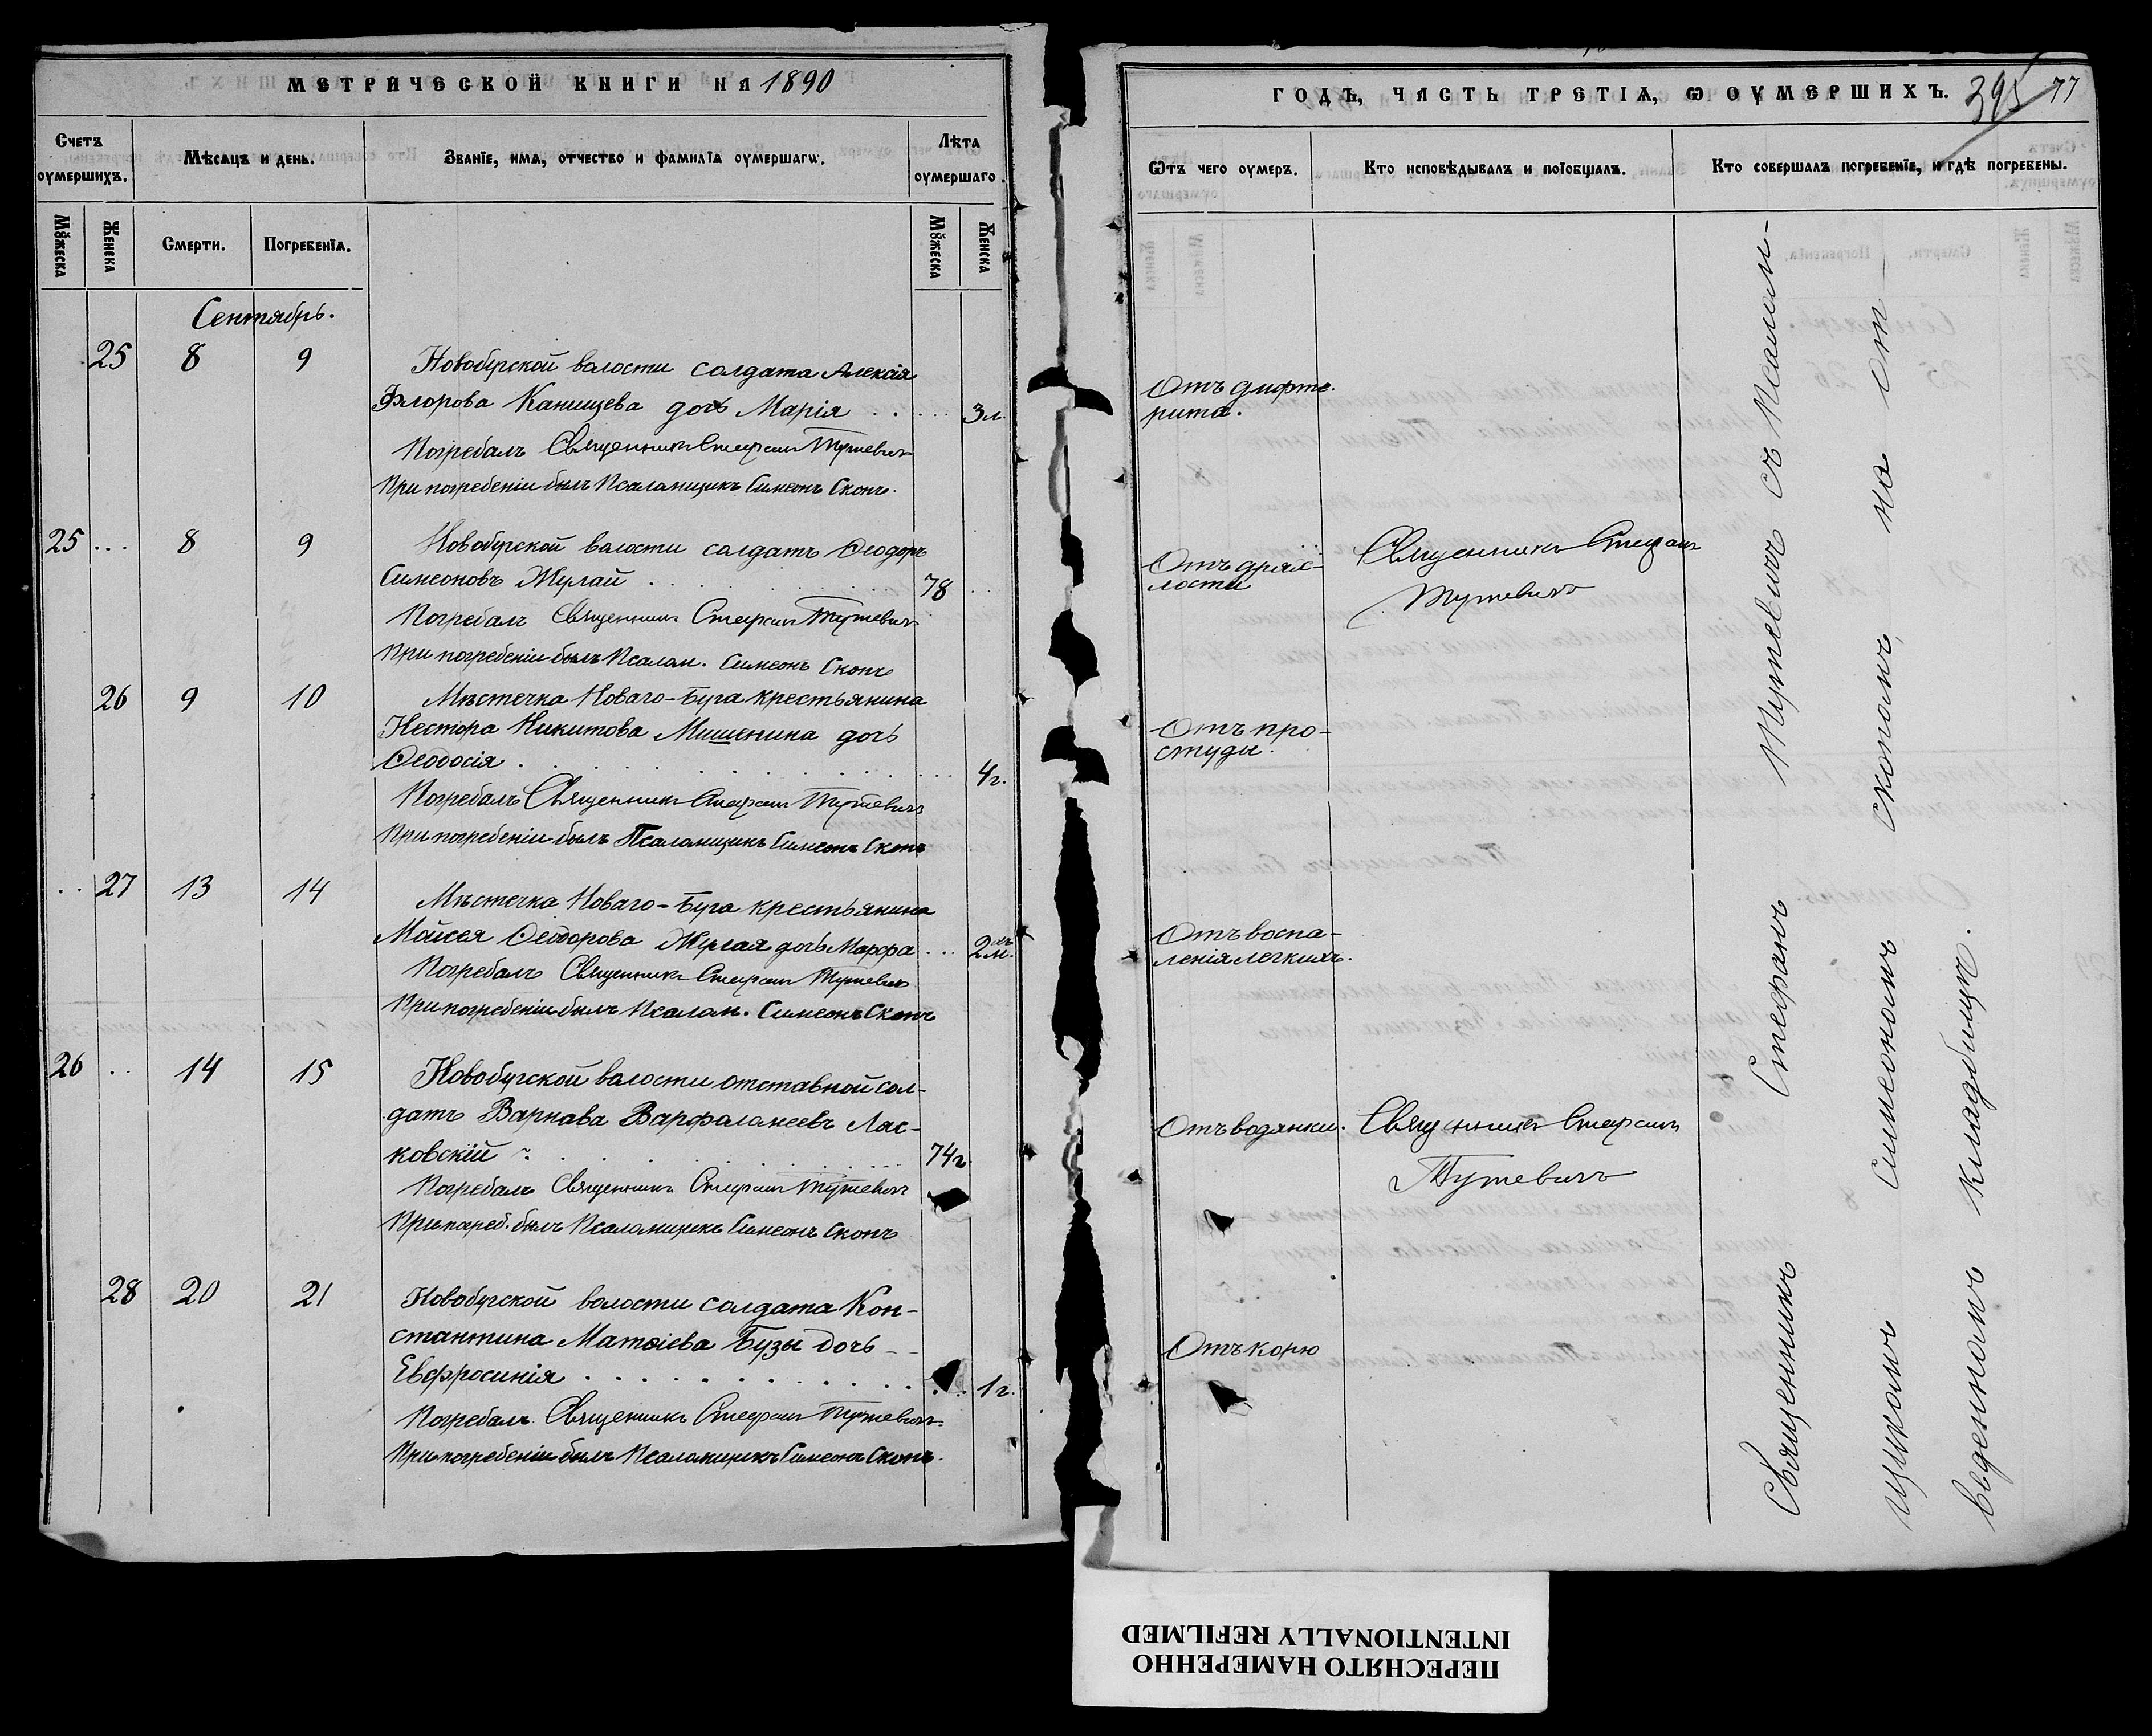 МЕТРИЧЕСКОЙ КНИГИ НА 1890
Счетъ оумершихъ.
Мѣсяцъ и день.
Званїе, имѧ, отчество и фамилїѧ оумершагѡ.
Лѣта оумершаго.
Мꙋжеска
Женска
Смерти.
Погребенїѧ.
Мꙋжеска
Женска
Сентябрь.
25 8 9 Новобугской волости солдата Алексія
Флорова Канищева дочь Марія . . . . . 3 л.
Погребалъ Священникъ Стефанъ Тутевичъ
При погребеніи былъ Псаломщикъ Симеонъ Скопъ.
25 ... 8 9 Новобугской волости солдатъ Ѳеодоръ
Симеоновъ Жулай . . . 78
Погребалъ Священникъ Стефанъ Тутевичъ
При погребеніи былъ Псалом. Симеонъ Скопъ
26 9 10 Мѣстечка Новаго-Буга крестьянина
Нестора Никитова Мишенина дочь
Ѳеодосія . . . . . . . . . . 4 г.
Погребалъ Священникъ Стефанъ Тутевичъ
При погребеніи былъ Псаломщикъ Симеонъ Скопъ
.. 27 13 14 Мѣстечка Новаго-Буга крестьянина
Мойсея Ѳеодорова Жулая дочь Марѳа ... 2 хъ м.
Погребалъ Священникъ Стефанъ Тутевичъ
При погребеніи былъ Псалом. Симеонъ Скопъ
26 .. 14 15 Новобугской волости отставной сол-
датъ Варнава Варфаломеевъ Ляс-
ковскій . . . . . . . . . 74 г.
Погребалъ Священникъ Стефанъ Тутевичъ
При погреб. былъ Псаломщикъ Симеонъ Скопъ
28 20 21 Новобугской волости солдата Кон-
стантина Матѳіева Бузы дочь --
Евфросинія . . . . . . . . . . . 1 г.
Погребалъ Священникъ Стефанъ Тутевичъ
При погребеніи былъ Псаломщикъ Симеонъ Скопъ.
ГОДЪ, ЧАСТЬ ТРЕТІѦ, Ѡ ОУМЕРШИХЪ. 395 77
Ѿтъ чего оумеръ.
Кто исповѣдывалъ и поїобщалъ.
Кто совершалъ погребенїе, и гдѣ погребены.
Отъ дифте-
рита.
Отъ дрях-
лости
Священникъ Стефанъ
Тутевичъ
Отъ про-
студы.
Отъ воспа-
ленія легкихъ.
Отъ водянки.
Священникъ Стефанъ
Тутевичъ
Отъ корю
Священникъ Стефанъ Тутевичъ съ Псалом-
щикомъ Симеономъ Скопомъ, на от
веденномъ кладбищѣ.
ПЕРЕСНЯТО НАМЕРЕННО
INTENTIONALLY REFILMED